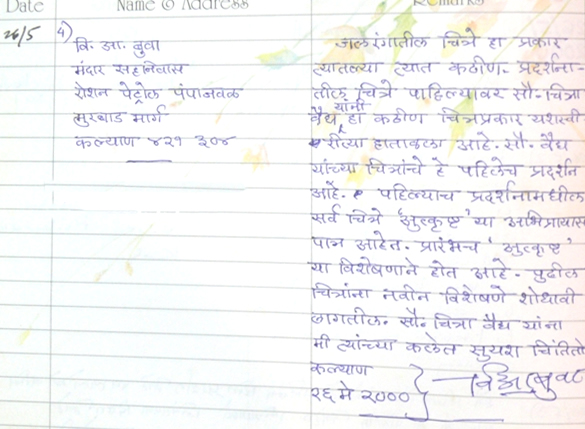 Date
Name & Address
Remarks
26/5
4)
वि. आ. बुवा
मंदार सहनिवास
रोशन पेट्रोल पंपाजवळ
मुरबाड मार्ग
कल्याण ४२१ ३०४
जलरंगातील चित्रे हा प्रकार
त्यातल्या त्यात कठीण. प्रदर्शना-
तील चित्रे पाहिल्यावर सौ. चित्रा
वैद्य यांनी हा कठीण चित्रप्रकार यशस्वी
रीत्या हाताळला आहे. सौ. वैद्य
यांच्या चित्रांचे हे पहिलेच प्रदर्शन
आहे. पहिल्याच प्रदर्शनामधील
सर्व चित्रे 'उत्कृष्ट' या अभिप्रायास
पात्र आहेत. प्रारंभच 'उत्कृष्ट'
या विशेषणाने होत आहे. पुढील
चित्रांना नवीन विशेषणे शोधावी
लागतील. सौ. चित्रा वैद्य यांना
मी त्यांच्या कलेत सुयश चिंतितो
कल्याण
२६ मे २०००